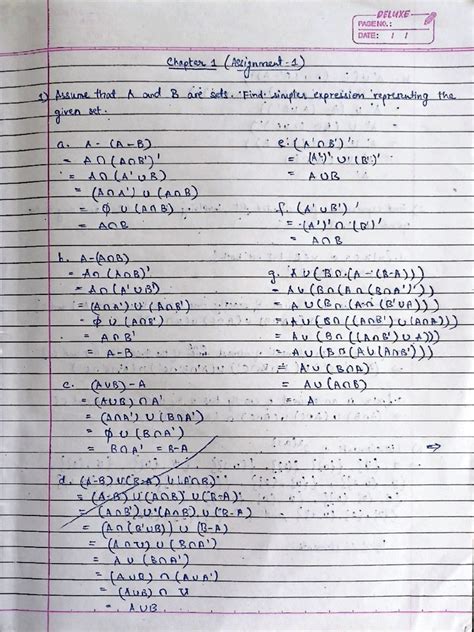 DELUXE
PAGE NO.:
DATE: / /
Chapter 1 (Assignment-1)
1) Assume that A and B are sets. Find simpler expression representing the
given set.
a. A - (A-B)
= A∩(A∩B')'
= A∩(A'∪B)
= (A∩A') ∪ (A∩B)
= ϕ ∪ (A∩B)
= A∩B
b. A-(A∩B)
= A∩(A∩B)'
= A∩(A'∪B')
= (A∩A') ∪ (A∩B')
= ϕ ∪ (A∩B')
= A∩B'
= A-B
c. (A∪B) - A
= (A∪B) ∩A'
= (A∩A') ∪ (B∩A')
= ϕ ∪ (B∩A')
= B∩A' = B-A
d. (A-B) ∪ (B-A) ∪ (A∩B)
= (A-B) ∪ (A∩B) ∪ (B-A)
= (A∩B') ∪ (A∩B) ∪ (B-A)
= (A∩(B'∪B)) ∪ (B-A)
= (A∩U) ∪ (B∩A')
= A ∪ (B∩A')
= (A∪B) ∩ (A∪A')
= (A∪B) ∩ U
= A∪B
e. (A'∩B')'
= (A')' ∪ (B')'
= A∪B
f. (A'∪B')'
= (A')' ∩ (B')'
= A∩B
g. A∪(B∩(A-(B-A)))
= A∪(B∩(A∩(B∩A')'))
= A∪(B∩(A∩(B'∪A)))
= A∪(B∩((A∩B')∪(A∩A)))
= A∪(B∩((A∩B')∪A))
= A∪(B∩(A∪(A∩B')))
= A∪(B∩A)
= A∪(A∩B)
= A
⇒